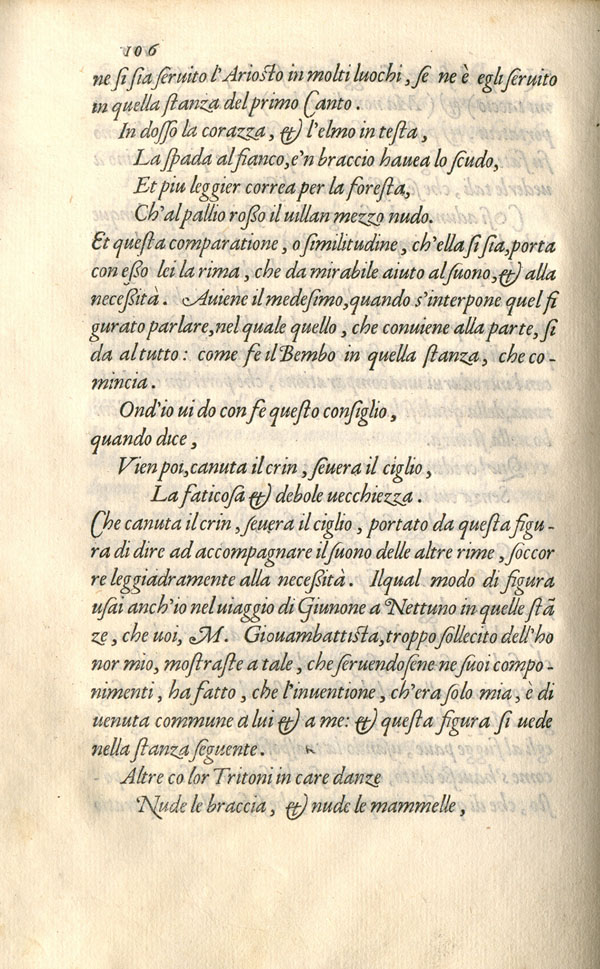 106
ne si sia seruito l'Ariosto in molti luochi, se ne è egli seruito
in quella stanza del primo Canto.
In dosso la corazza, & l'elmo in testa,
La spada al fianco, e'n braccio hauea lo scudo,
Et piu leggier correa per la foresta,
Ch'al pallio roßo il uillan mezzo nudo.
Et questa comparatione, o similitudine, ch'ella si sia, porta
con eßo lei la rima, che da mirabile aiuto al suono, & alla
neceßità. Auiene il medesimo, quando s'interpone quel fi
gurato parlare, nel quale quello, che conuiene alla parte, si
da al tutto: come fe il Bembo in quella stanza, che co-
mincia.
Ond'io ui do con fe questo consiglio,
quando dice,
Vien poi, canuta il crin, seuera il ciglio,
La faticosa & debole uecchiezza.
Che canuta il crin, seuera il ciglio, portato da questa figu-
ra di dire ad accompagnare il suono delle altre rime, soccor
re leggiadramente alla neceßità. Ilqual modo di figura
usai anch'io nel uiaggio di Giunone a Nettuno in quelle stā
ze, che uoi, M. Giouambattista, troppo sollecito dell'ho
nor mio, mostraste a tale, che seruendosene ne suoi compo-
nimenti, ha fatto, che l'inuentione, ch'era solo mia, è di
uenuta commune a lui & a me: & questa figura si uede
nella stanza seguente.
Altre co lor Tritoni in care danze
Nude le braccia, & nude le mammelle,